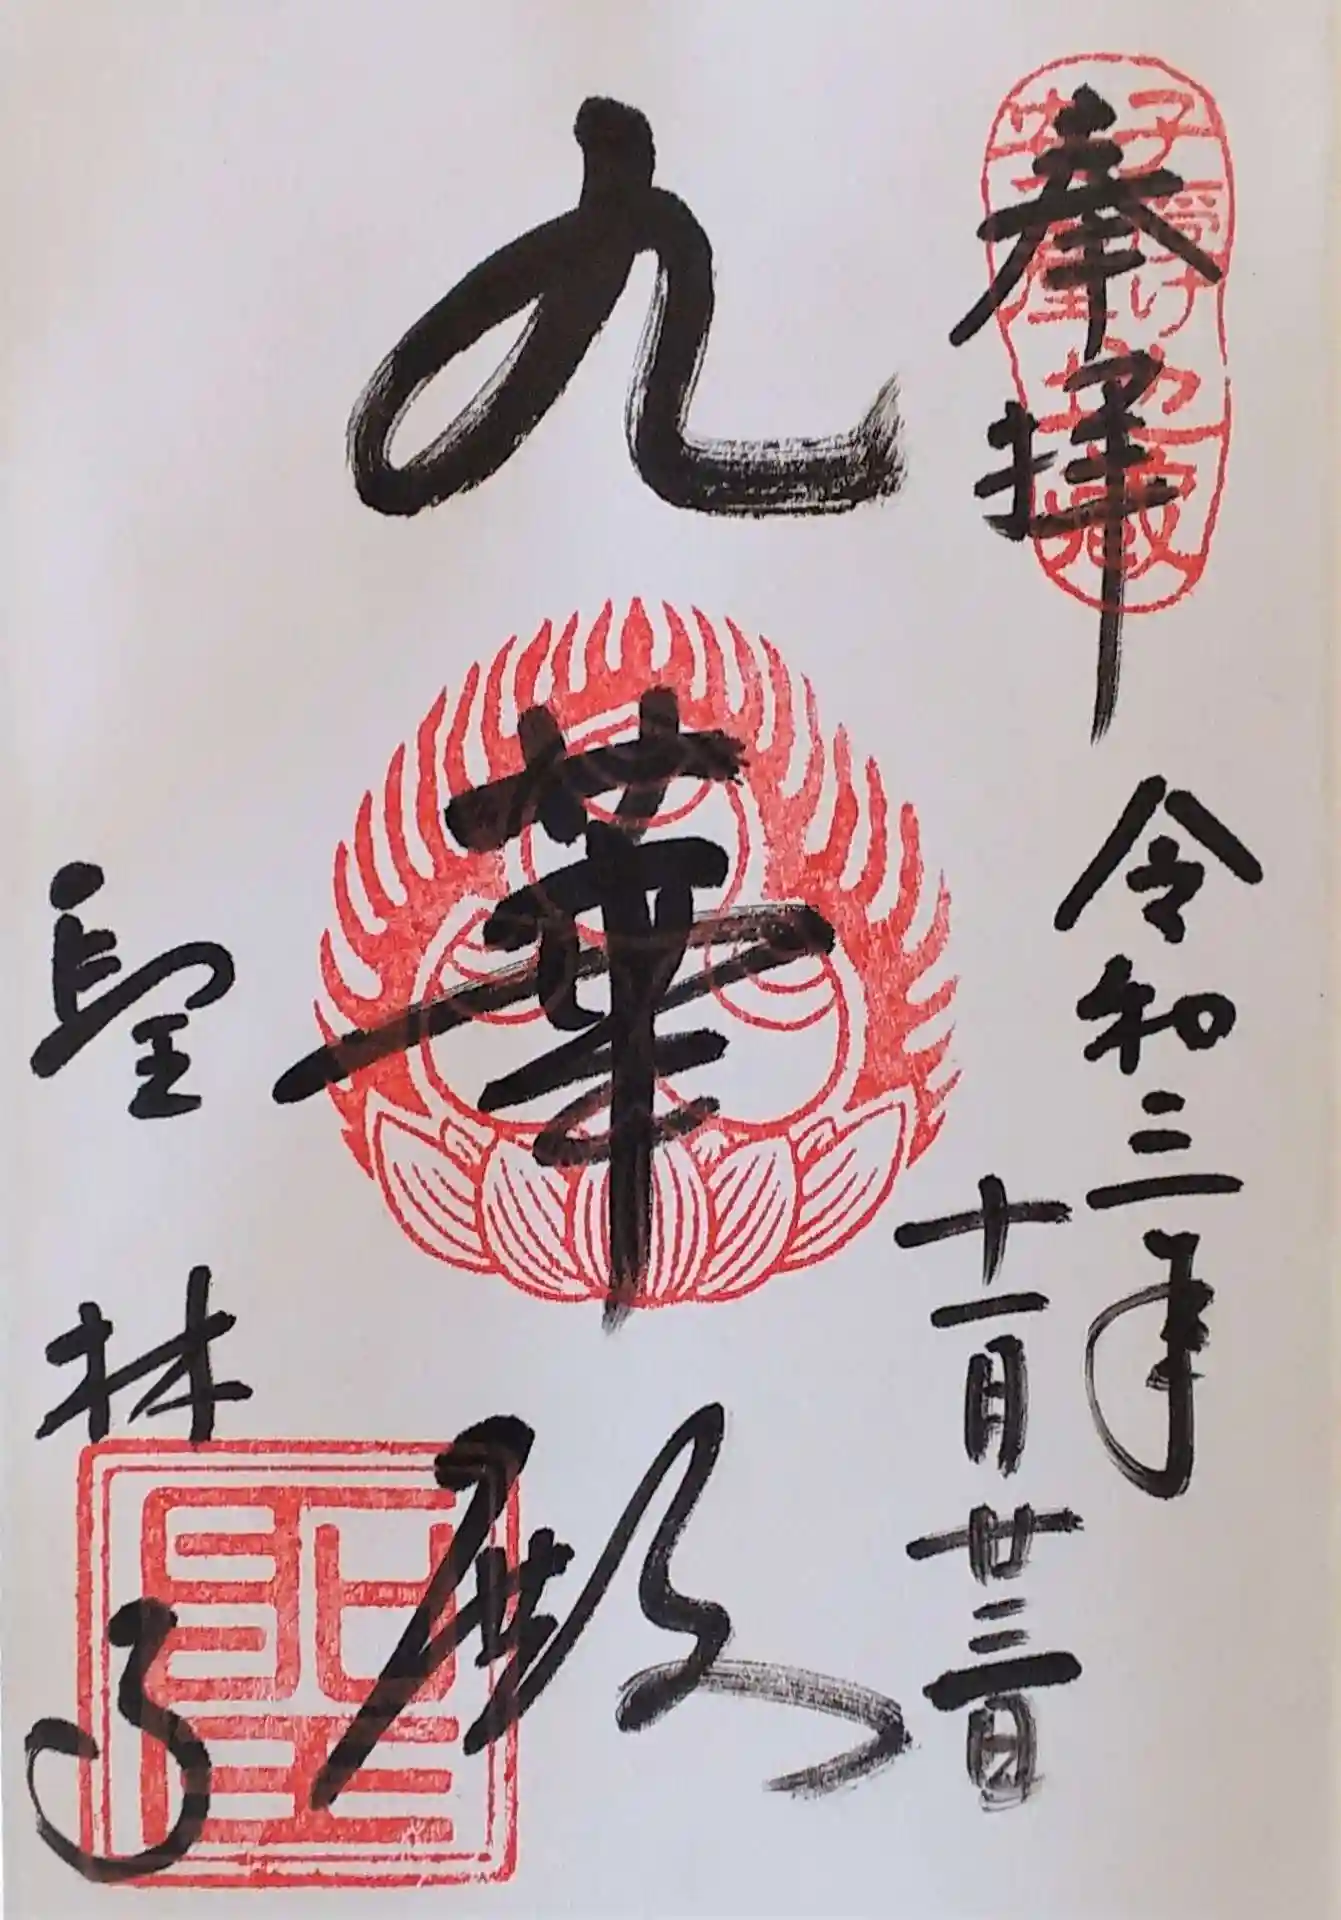 奉拝
子授け
安産
地蔵
令和三年
十一月廿三日
九華殿
聖林寺
聖